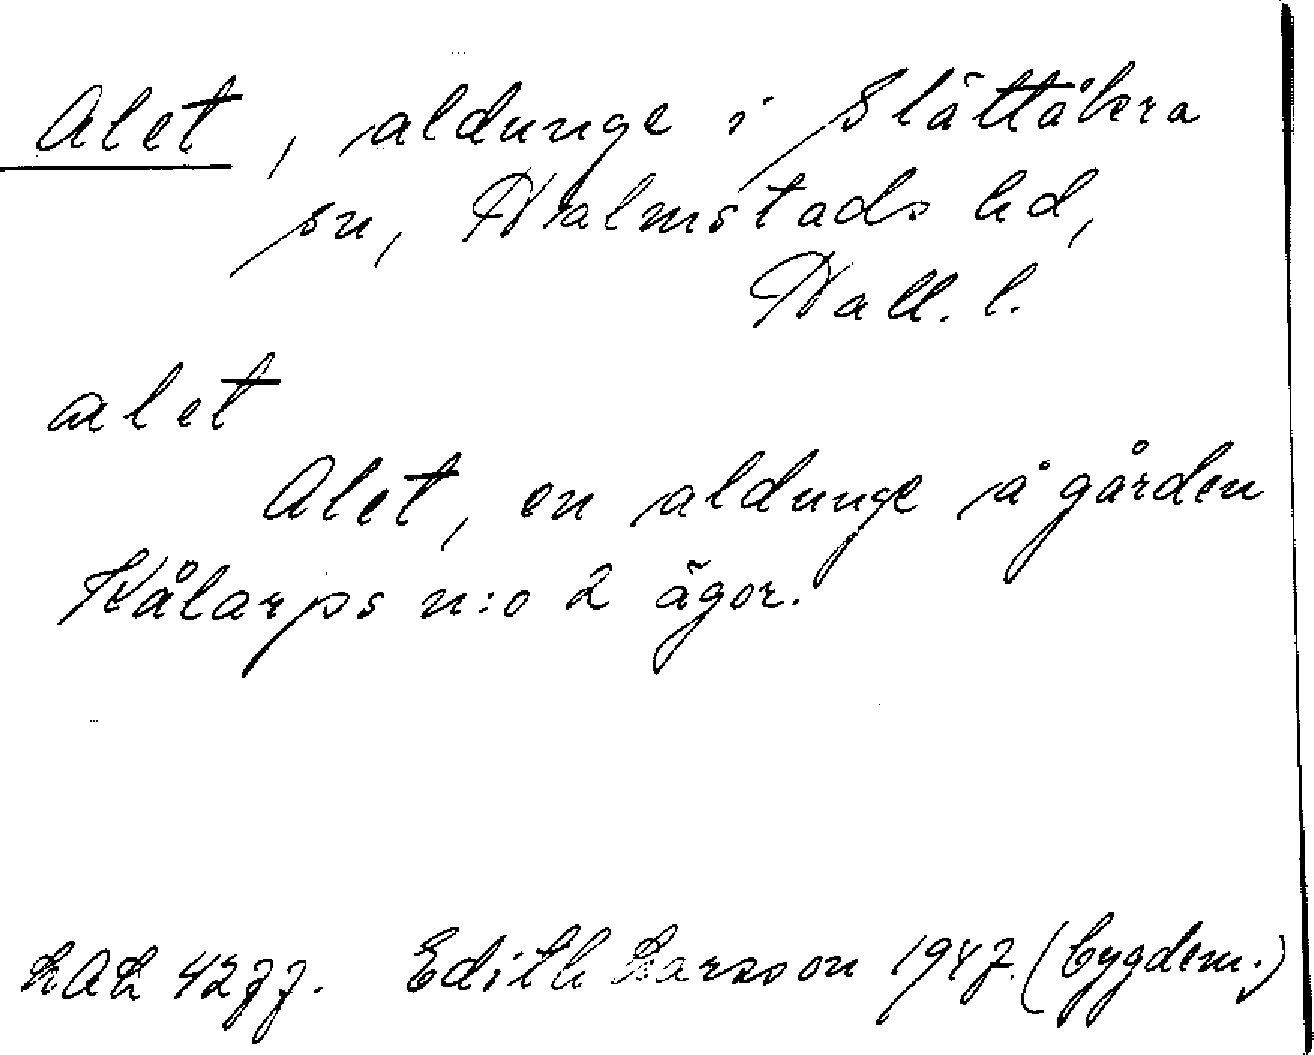 Alet, aldunge i Slättåkra
sn, Halmstads hd,
Hall. l.
alet
Alet, en aldunge å gården
Kålarps n:o 2 ägor.
LAL 4277. Edith Larsson 1947. (bygdem.)